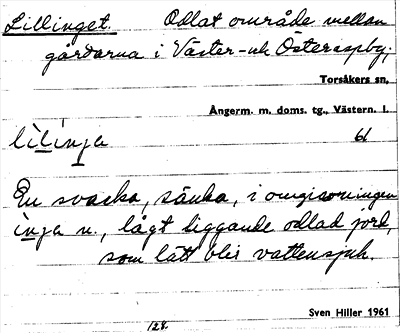 Lillinget. Odlat område mellan
gårdarna i Väster- och Österaspby,
Torsåkers sn,
Ångerm. m. doms. tg., Västern. l.
lìlìnja 61
En svacka, sänka, i omgivningen
inga n., lågt liggande odlad jord,
som lätt blir vattensjuk.
Sven Hiller 1961
128.